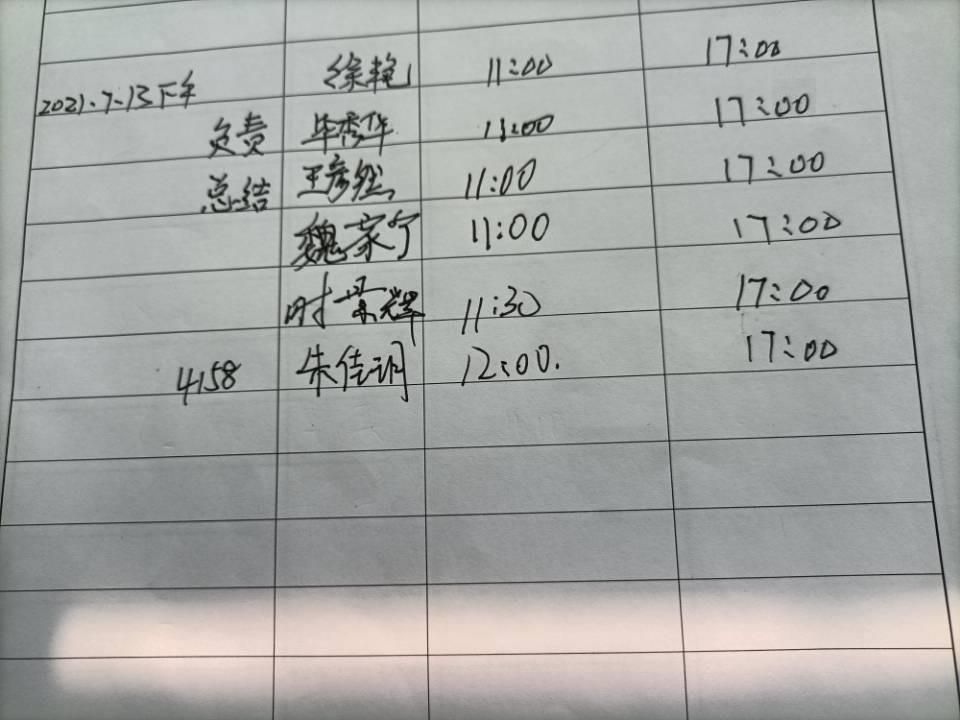 2021.7.13下午 徐艳 11:00 17:00
负责 毕秀华 11:00 17:00
总结 王彦然 11:00 17:00
魏家宁 11:00 17:00
时荣辉 11:30 17:00
4158 朱佳 12:00. 17:00